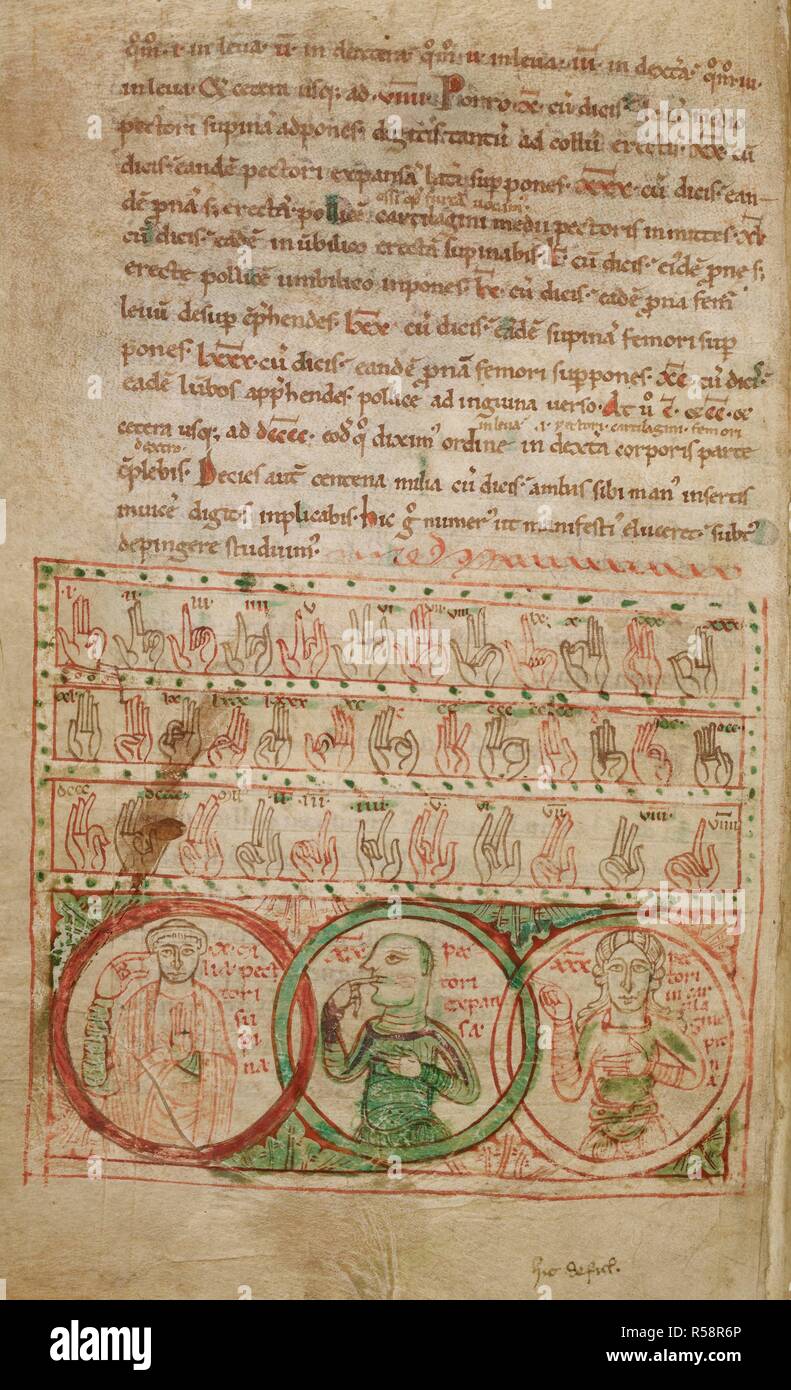 qm̄. i. in leua. ii. in dextera. qm̄. ii. in leua. iii. in dextra. qm̄. iii.
in leua. Et cetera usq; ad. viiii. Porro. x. cū dicis
pectori supinā adpones. digitis tantū ad collū erectis. xx. cū
dicis. eandē pectori expansā late suppones. xxx. cū dicis. ean-
dē pnā s; erectā pollice cartilagini medii pectoris inmittes. xl.
cū dicis. eadē in ūbilico erectā supinabis. l. cū dicis. eidē prone s;
erecte pollicē umbilico inpones. lx. cū dicis. eadē prona femr̄
leuū desup cp̄hendes. lxx. cū dicis. eadē supinā femori sup
pones. lxxx. cū dicis. eandē pronā femori suppones. xc. cū dicis.
eadē lūbos app̄hendes. pollice ad inguina uerso. At ū c. & cc. &
in leua
cetera usq; ad dcccc. eodē q̊ diximꝰ ordine in dextra corporis parte
cp̄lebis. Decies autē centena milia cū dicis. ambas sibi manꝰ insertis
inuicē digitis inplicabis. hic g̊ numerꝰ ut manifestiꝰ eluceret. subtꝰ
depingere studuimꝰ.
i. ii. iii. iiii. v. vi. vii. viii. ix. x. xx. xxx.
xl. lx. lxx. lxxx. xc. c. cc. ccc. cccc. d. dc. dcc.
dccc. dcccc. ii. iii. iiii. v. vi. vii. viii. viiii.
pect
tori
su
pi
na
xx
pec
tori
expan
sa
xxx
pec
tori
in car
tila
gine
p na
hic defic̄.
alamy
Image ID: R58R6P
www.alamy.com